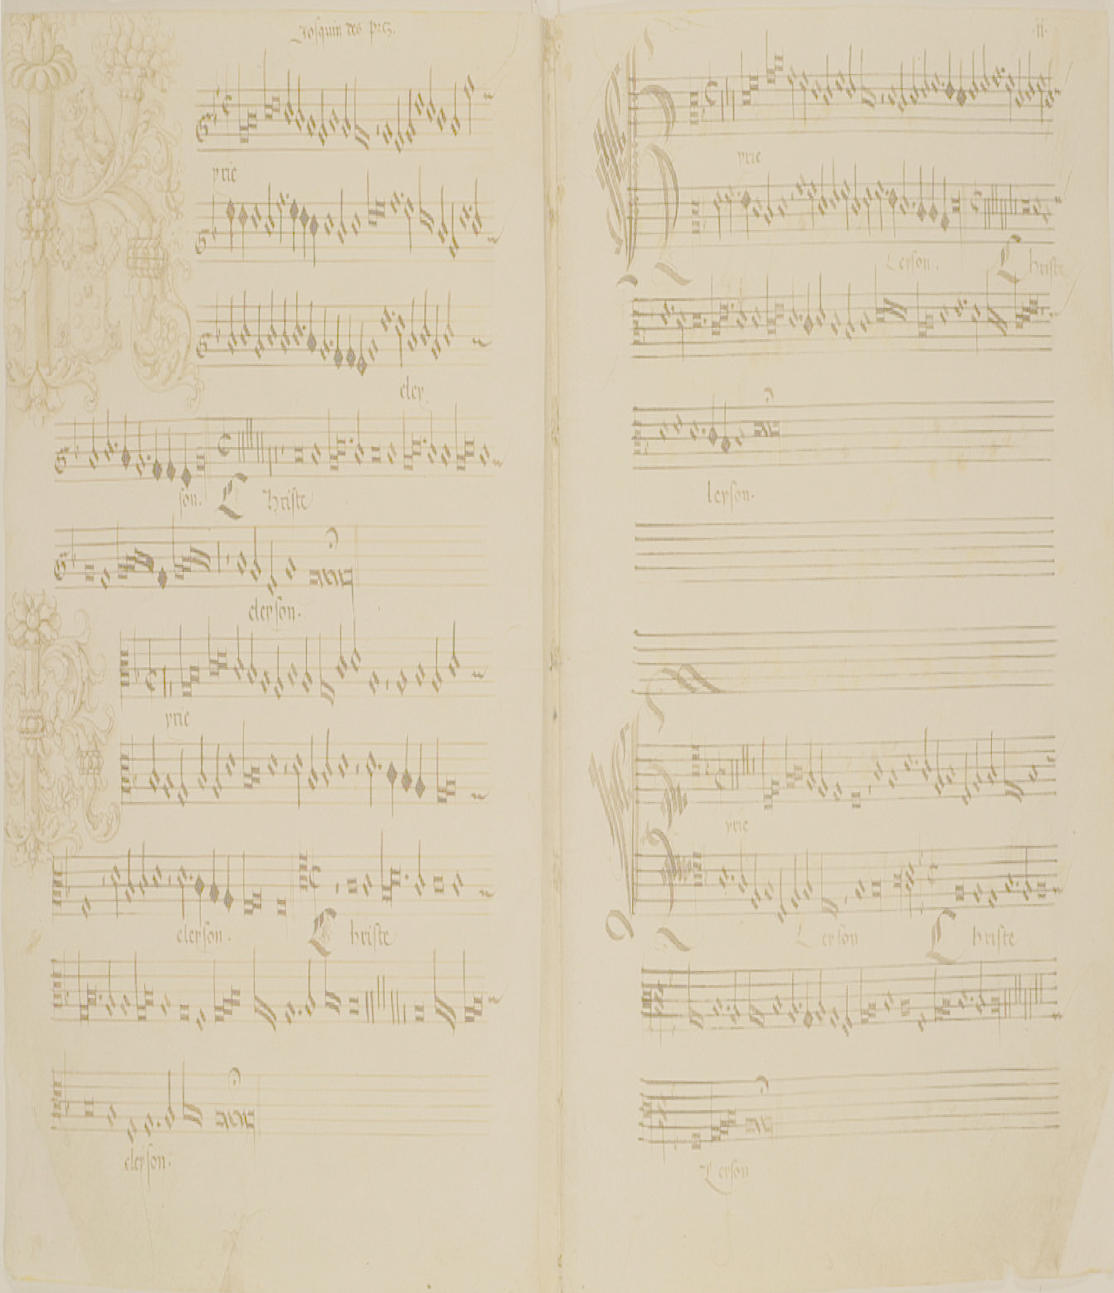 Josquin des prez.
yrie
eley
son. Christe
eleyson.
yrie
eleyson. Christe
eleyson.
ii.
Kyrie
Leyson. Christe
leyson.
Kyrie
Leyson Christe
Leyson